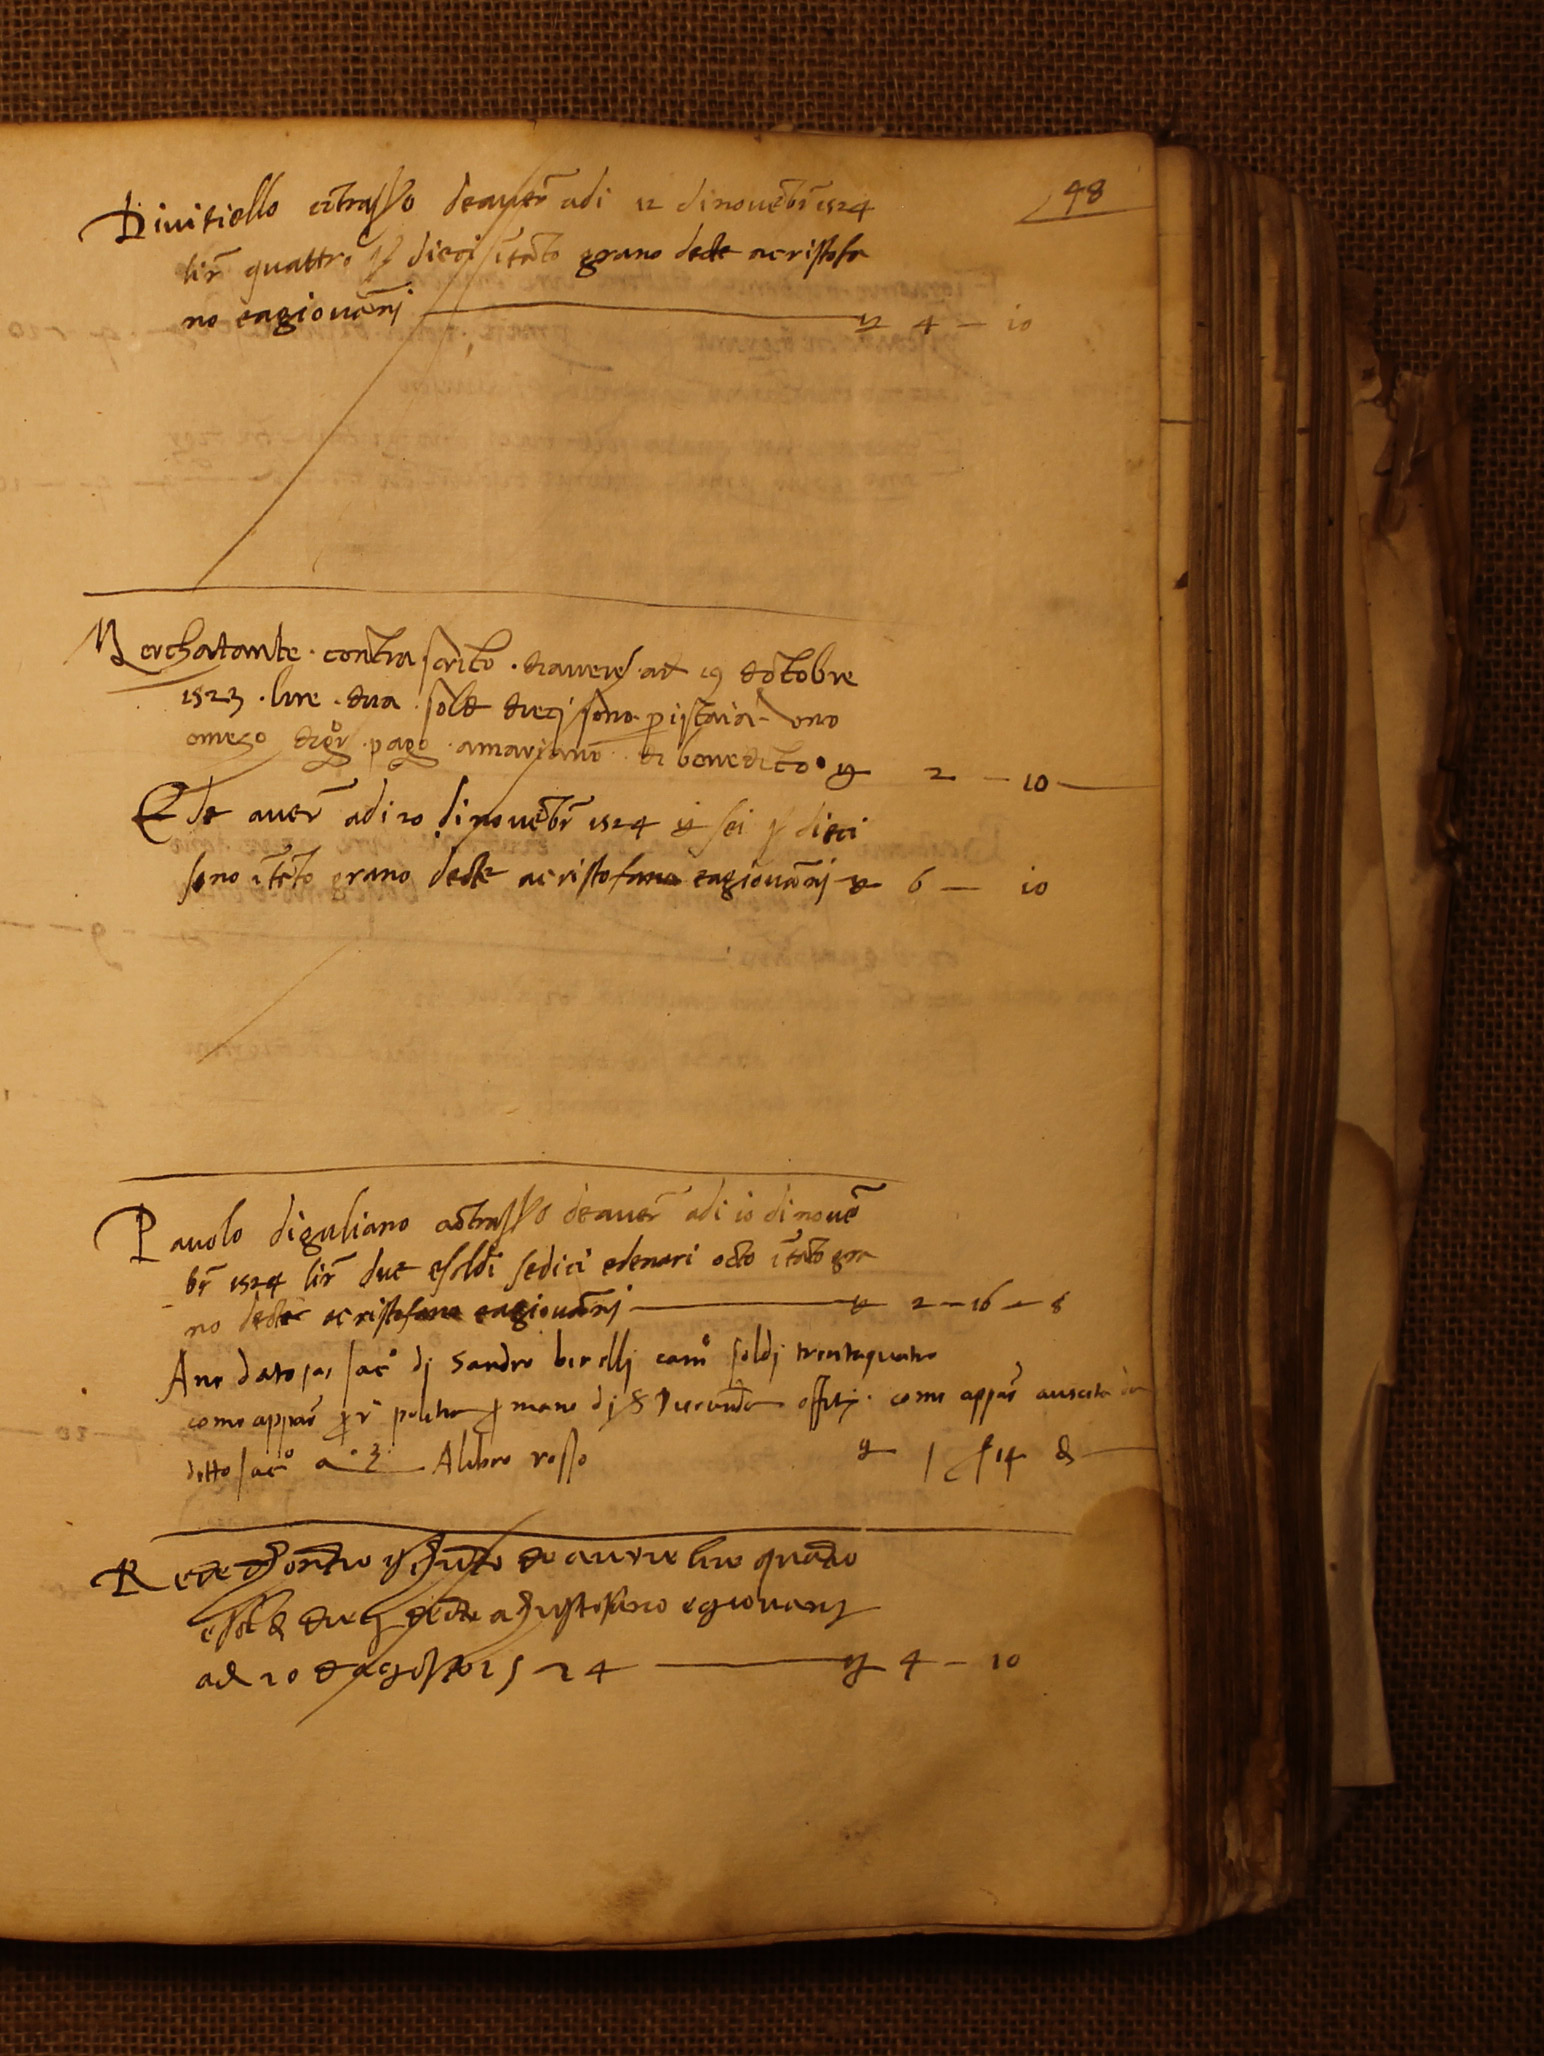 48
Divitiello cõtrasso de aver̃ adi 12 di novẽbr̃ 1524
lir̃ quattro ß dieci ĩtãto grano dette acristofa
no eagiovãnj ——— 4 — 10
Merchatante · contra scrito · di avere · adi 19 dottobre
1523 · lire · dua · soldi dieci sono p istaia uno
omezo di gº pago · amariano di beneditto · 2 — 10 —
E de aver̃ adi 20 di novẽbr̃ 1524 sei ß dieci
sono ĩtãto grano dette acristofano eagiovãnj 6 — 10
Pavolo di guliano cõtrasso de aver̃ adi 10 di novẽ
br̃ 1524 lir̃ due esoldi sedici edenari octo ĩtãto gra
no dette acristofano eagiovãnj ——— 2 — 16 — 8
Ane dato sac° di Sandro camº soldj trentaquatro
como appar̃ p mano dj como appar̃ auscita
detto sac° a 3 Alibro rosso 1 ß 14
Rede de avere lire quatro
e soldi dieci dette a Christofano e giovanj
adi 20 dagosto 1524 ——— 4 — 10